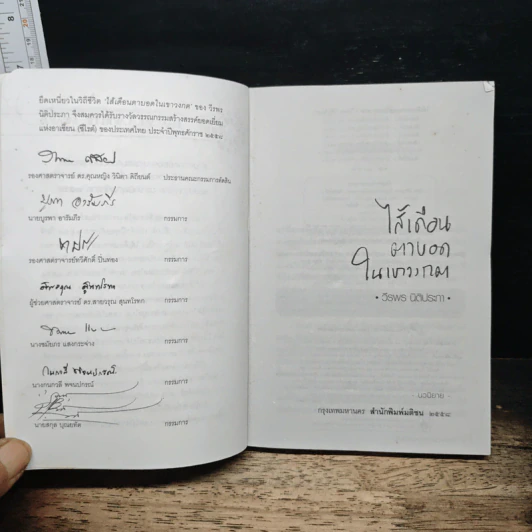 ยึดเหนี่ยวในวิถีชีวิต 'ไส้เดือนตาบอดในเขาวงกต' ของ วีรพร
นิติประภา จึงสมควรได้รับรางวัลวรรณกรรมสร้างสรรค์ยอดเยี่ยม
แห่งอาเซียน (ซีไรต์) ของประเทศไทย ประจำปีพุทธศักราช ๒๕๕๘
รองศาสตราจารย์ ดร.คุณหญิง วินิตา ดิถียนต์ ประธานคณะกรรมการตัดสิน
บูรพา อารัมภีร
นายบูรพา อารัมภีร กรรมการ
รองศาสตราจารย์ทวีศักดิ์ ปิ่นทอง กรรมการ
สายวรุณ สุนทโรทก
ผู้ช่วยศาสตราจารย์ ดร.สายวรุณ สุนทโรทก กรรมการ
นายขมัยภร แสงกระจ่าง กรรมการ
กนกวลี พจนปกรณ์
นางกนกวลี พจนปกรณ์ กรรมการ
นายสกุล บุณยทัต กรรมการ
ไส้เดือน
ตาบอด
ในเขาวงกต
• วีรพร นิติประภา •
นวนิยาย
กรุงเทพมหานคร สำนักพิมพ์มติชน ๒๕๕๘
8
9